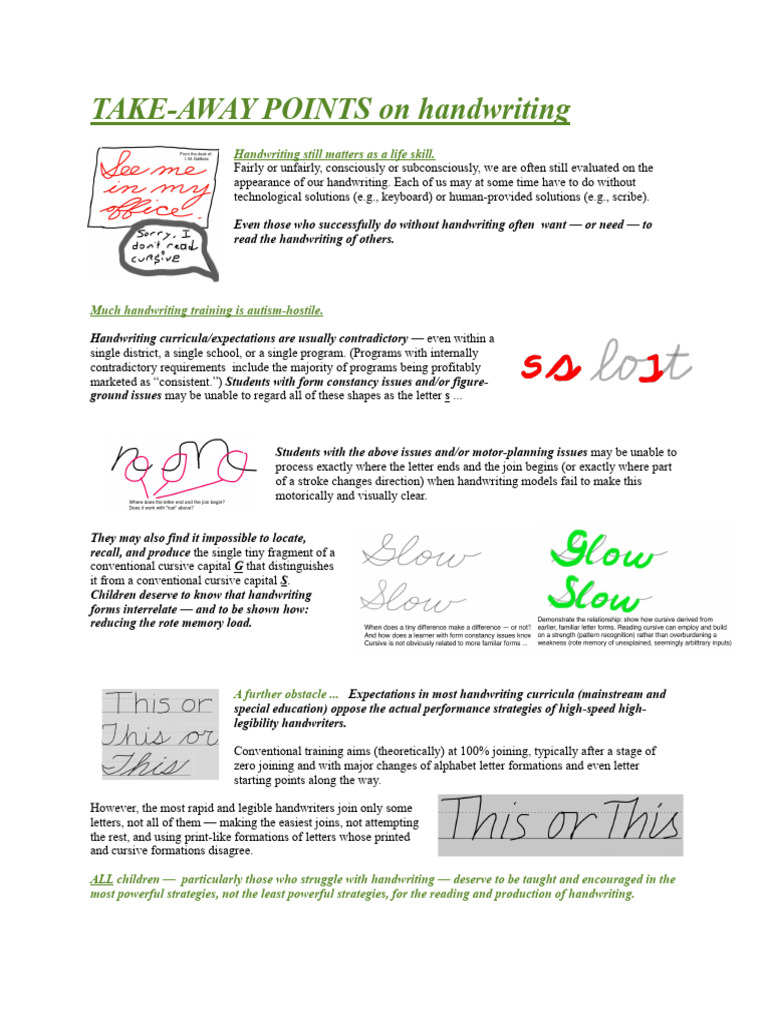 TAKE-AWAY POINTS on handwriting
From the desk of
I. M. DaBoss
See me
in my
office.
Sorry, I
don't read
cursive
Handwriting still matters as a life skill.
Fairly or unfairly, consciously or subconsciously, we are often still evaluated on the
appearance of our handwriting. Each of us may at some time have to do without
technological solutions (e.g., keyboard) or human-provided solutions (e.g., scribe).
Even those who successfully do without handwriting often  want — or need — to
read the handwriting of others.
Much handwriting training is autism-hostile.
Handwriting curricula/expectations are usually contradictory — even within a
single district, a single school, or a single program. (Programs with internally
contradictory requirements  include the majority of programs being profitably
marketed as “consistent.”) Students with form constancy issues and/or figure-
ground issues may be unable to regard all of these shapes as the letter s ...
s s lost
Where does the letter end and the join begin?
Does it work with "lost" above?
Students with the above issues and/or motor-planning issues may be unable to
process exactly where the letter ends and the join begins (or exactly where part
of a stroke changes direction) when handwriting models fail to make this
motorically and visually clear.
They may also find it impossible to locate,
recall, and produce the single tiny fragment of a
conventional cursive capital G that distinguishes
it from a conventional cursive capital S.
Children deserve to know that handwriting
forms interrelate — and to be shown how:
reducing the rote memory load.
Glow
Slow
When does a tiny difference make a difference — or not?
And how does a learner with form constancy issues know
Cursive is not obviously related to more familar forms ...
Glow
Slow
Demonstrate the relationship: show how cursive derived from
earlier, familiar letter forms. Reading cursive can employ and build
on a strength (pattern recognition) rather than overburdening a
weakness (rote memory of unexplained, seemingly arbittrary inputs)
This or
This or
This
A further obstacle ...   Expectations in most handwriting curricula (mainstream and
special education) oppose the actual performance strategies of high-speed high-
legibility handwriters.
Conventional training aims (theoretically) at 100% joining, typically after a stage of
zero joining and with major changes of alphabet letter formations and even letter
starting points along the way.
However, the most rapid and legible handwriters join only some
letters, not all of them — making the easiest joins, not attempting
the rest, and using print-like formations of letters whose printed
and cursive formations disagree.
This or This
ALL children —  particularly those who struggle with handwriting — deserve to be taught and encouraged in the
most powerful strategies, not the least powerful strategies, for the reading and production of handwriting.